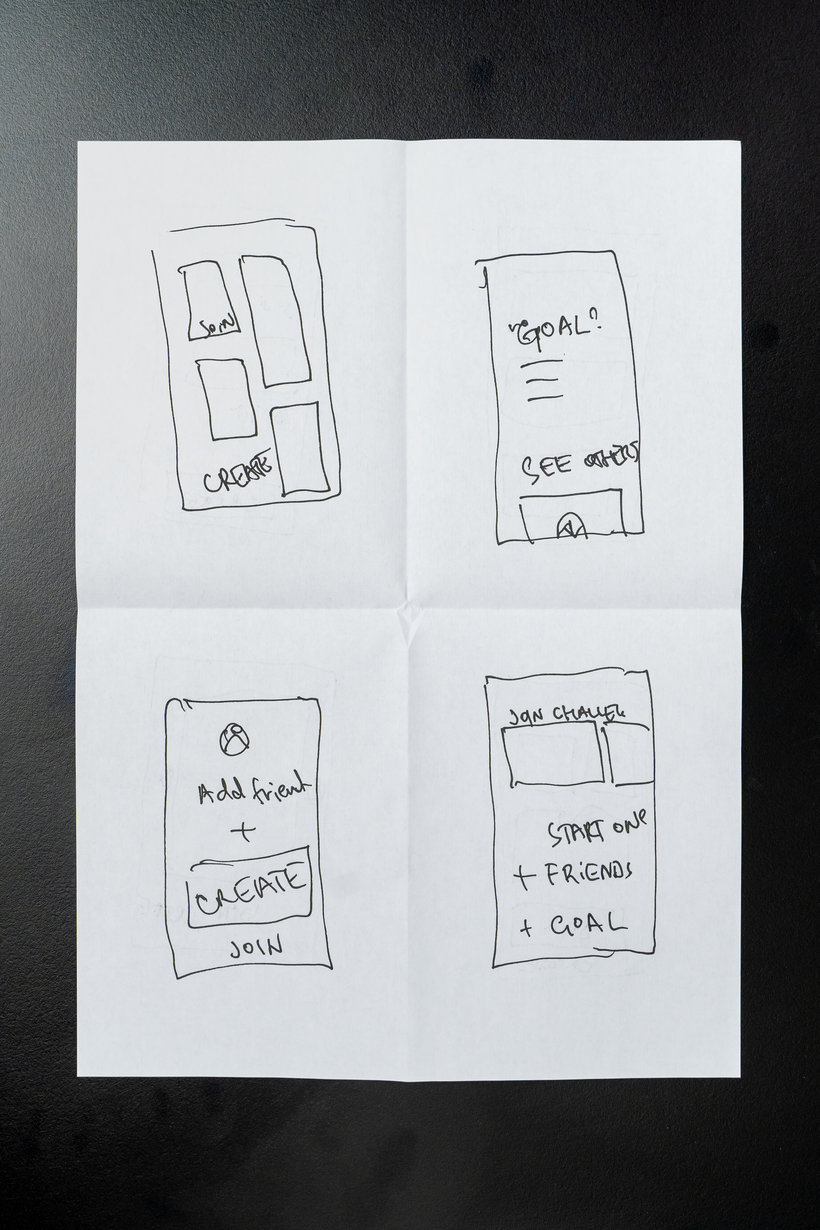 JOIN
CREATE
"GOAL"
SEE OTHERS
Add friend
+
CREATE
JOIN
JOIN CHALLEN
START ONE
+ FRIENDS
+ GOAL